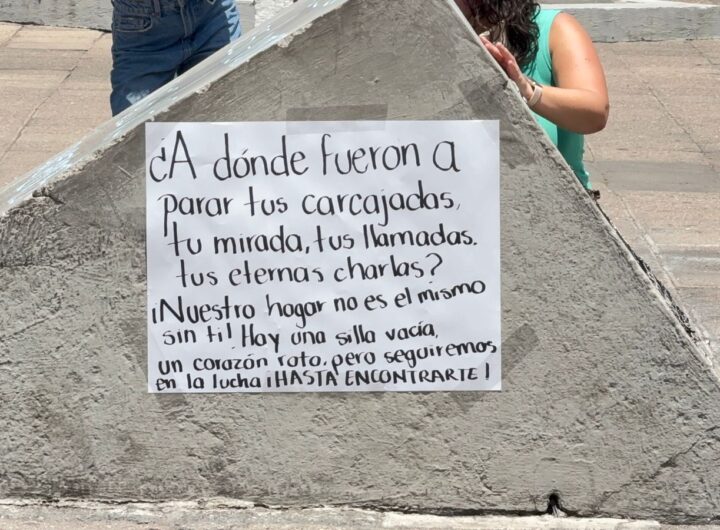 ¿A dónde fueron a
parar tus carcajadas,
tu mirada, tus llamadas.
tus eternas charlas?
¡Nuestro hogar no es el mismo
sin ti! Hay una silla vacía,
un corazón roto, pero seguiremos
en la lucha ¡HASTA ENCONTRARTE!